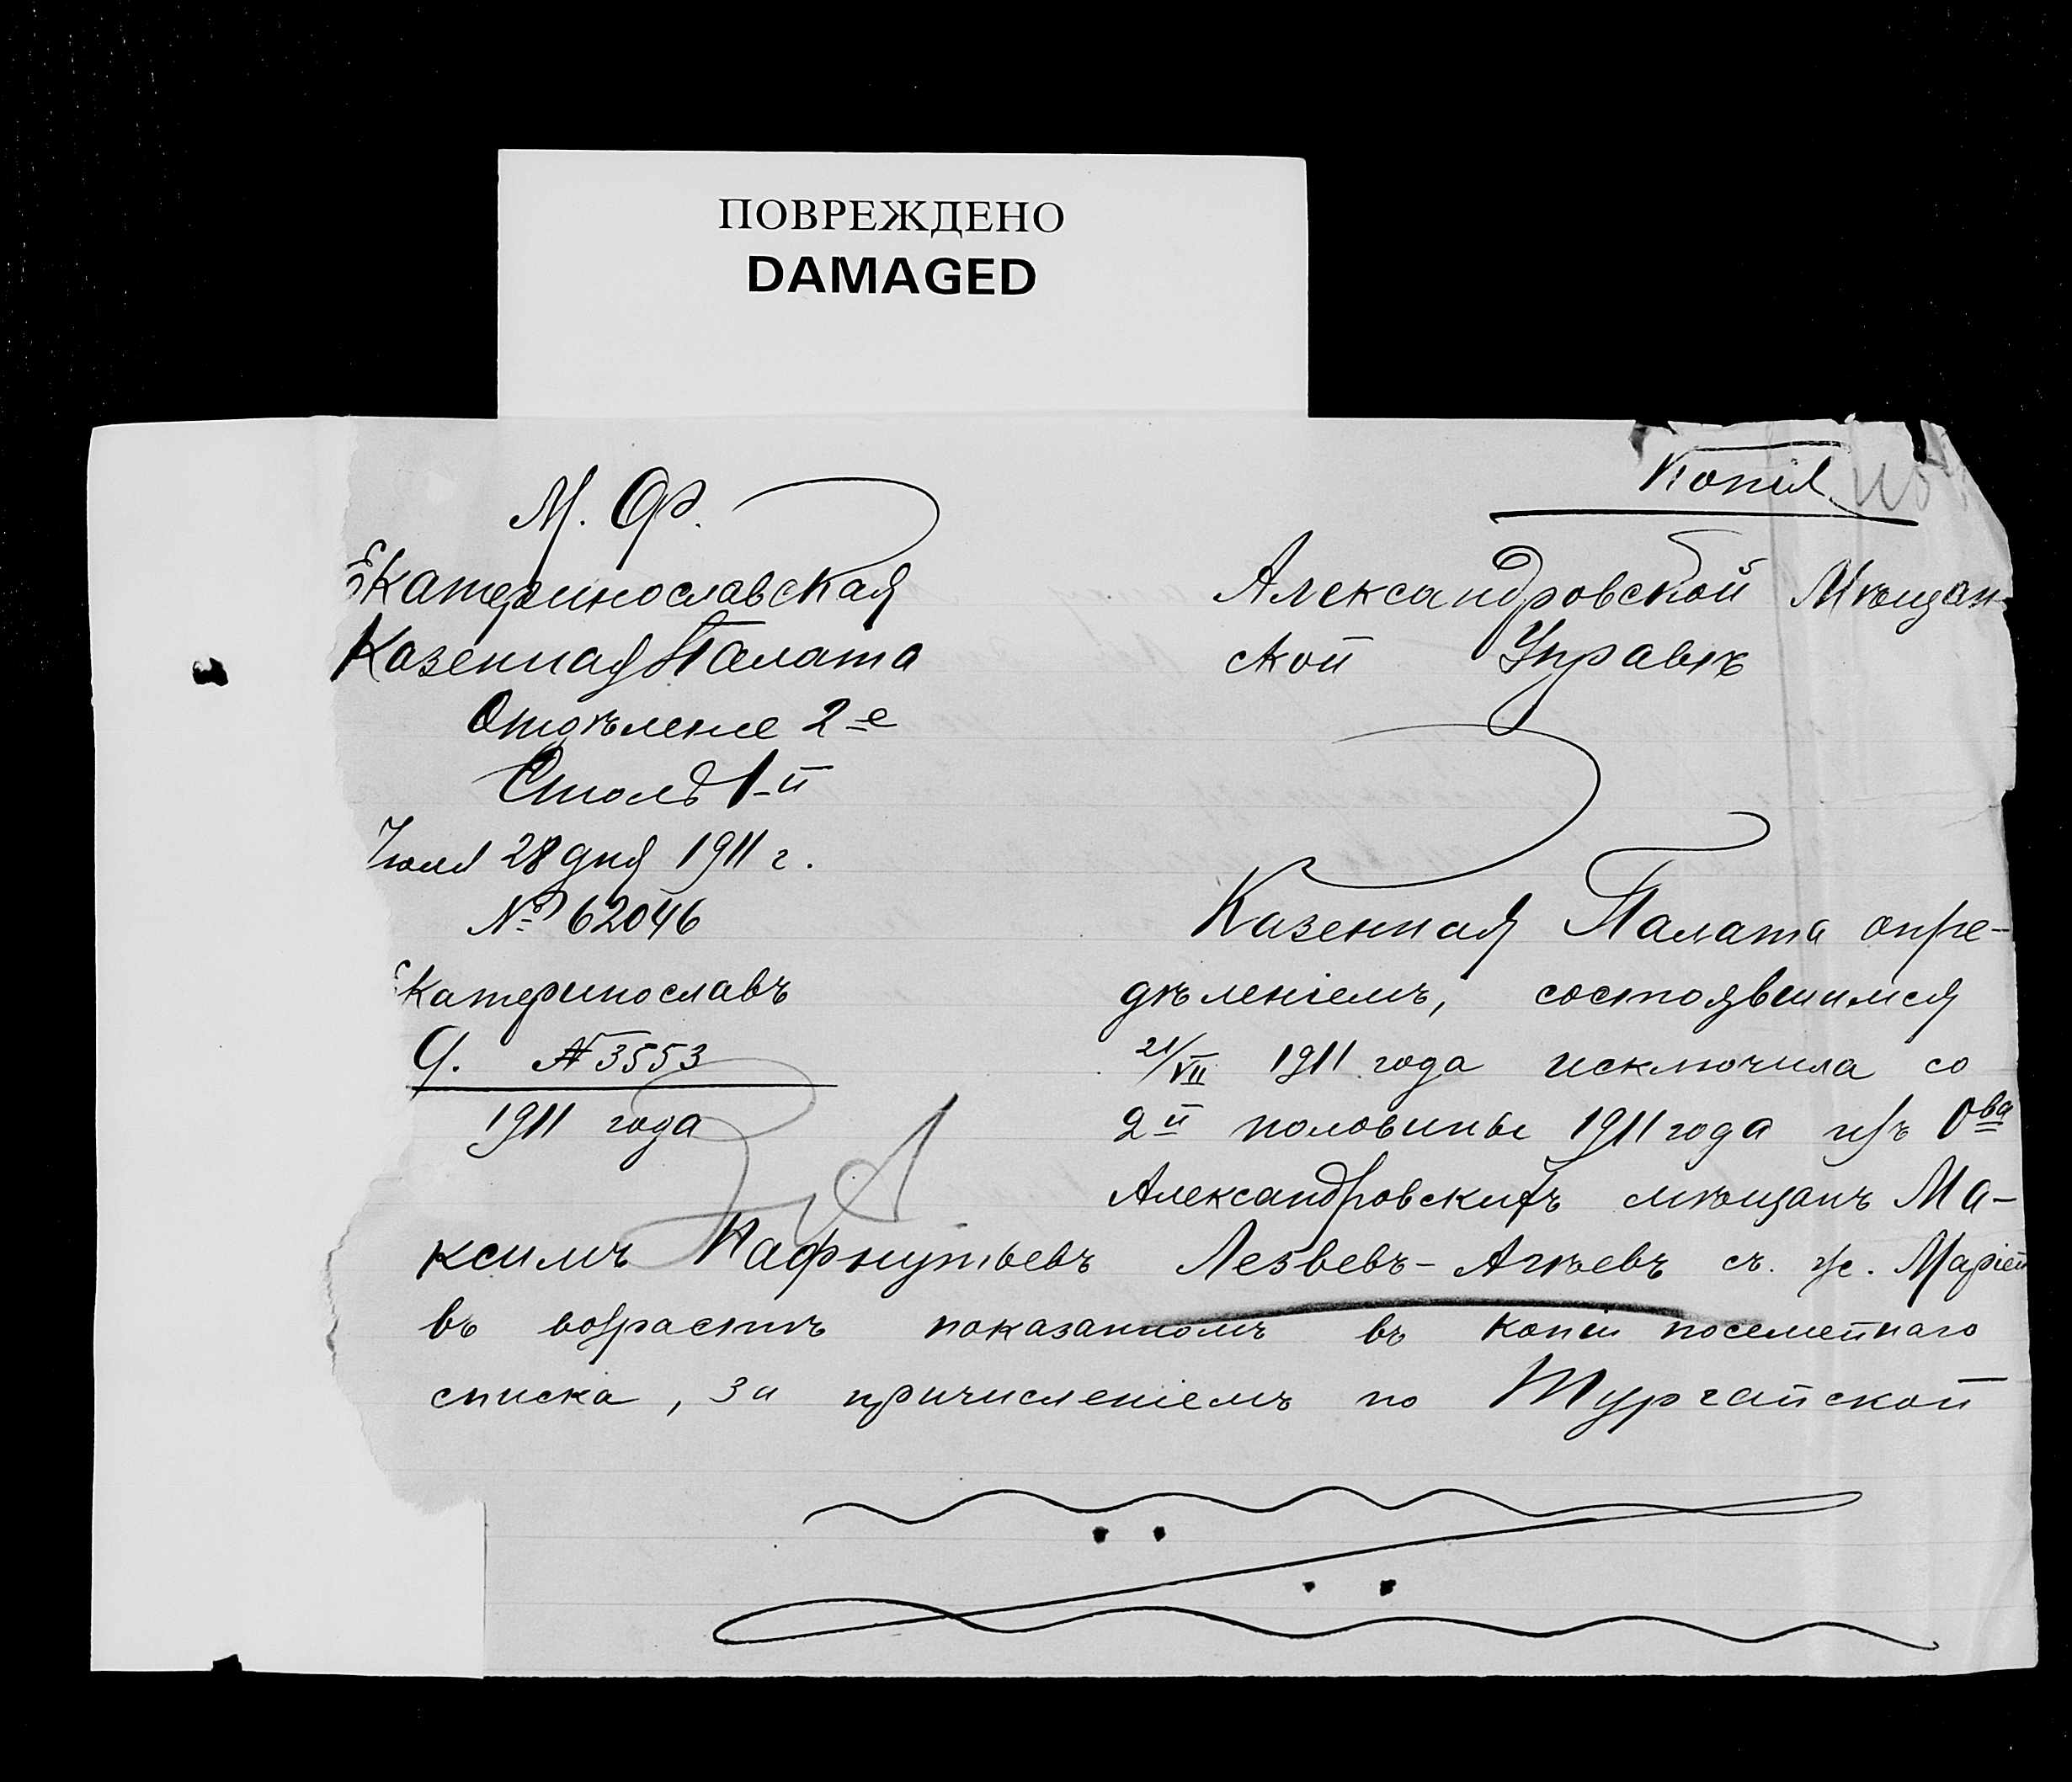 ПОВРЕЖДЕНО
DAMAGED
Копія
М. Ф.
Екатеринославская
Казенная Палата
Отдѣленіе 2-е
Столъ 1-й
Іюля 28 дня 1911 г.
№ 62046
Екатеринославъ
Д. № 3553
1911 года
Александровской Мѣщан-
ской Управѣ
Казенная Палата опре-
дѣленіемъ, состоявшимся
21/VII 1911 года исключила со
2й половины 1911 года изъ О-ва
Александровскихъ мѣщанъ Ма-
ксимъ Пафнутьевъ Лезвевъ-Агѣевъ съ ж. Маріей
въ возрастѣ показанномъ въ копіи посемейнаго
списка, за причисленіемъ по Тургайской